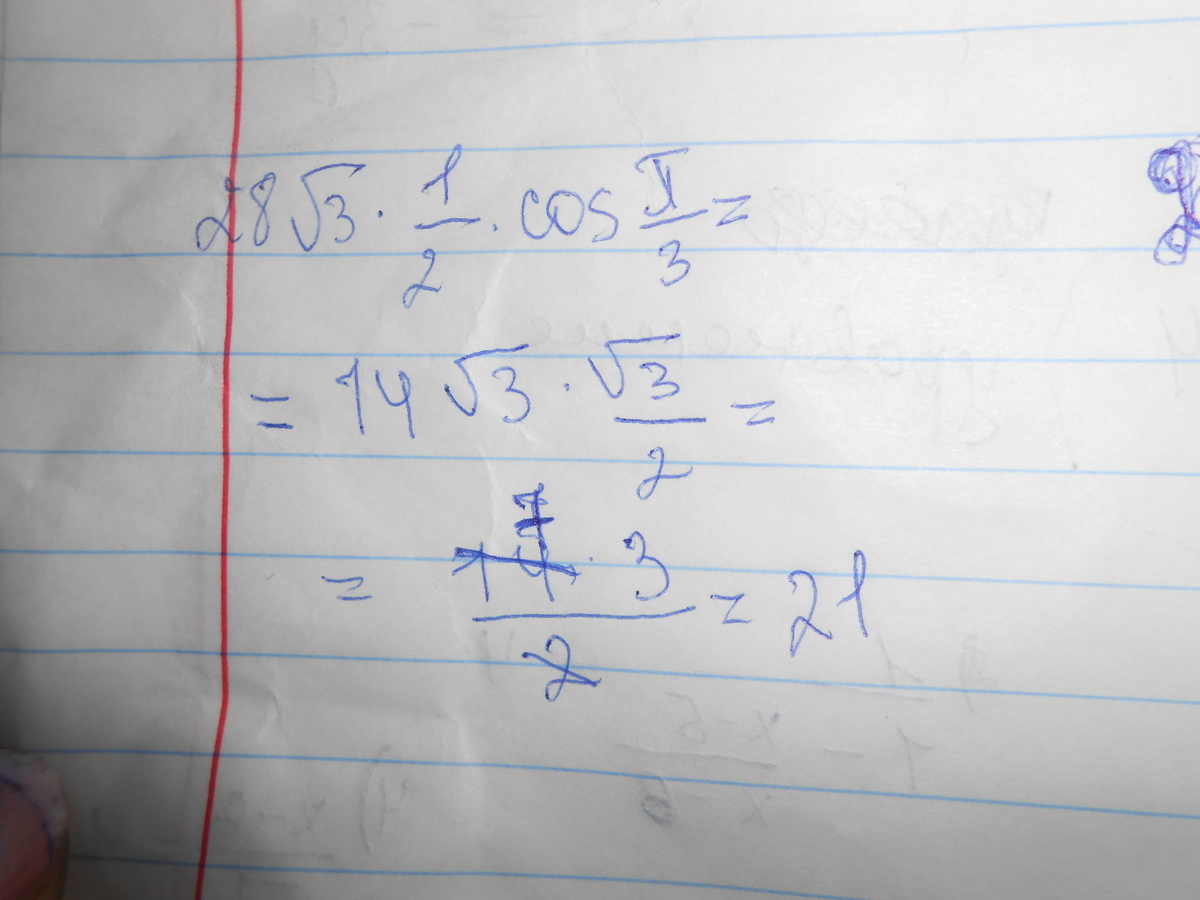 28√3 · 1/2 · cos π/3 =
= 14√3 · √3/2 =
= 14 7 · 3/2 = 21